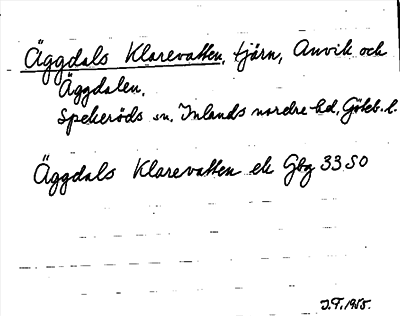 Äggdals Klarevatten, tjärn, Anvik och
Äggdalen,
Spekeröds sn, Inlands nordre hd, Göteb. l.
Äggdals Klarevatten ek Gbg 33 SO
J.F. 1955.